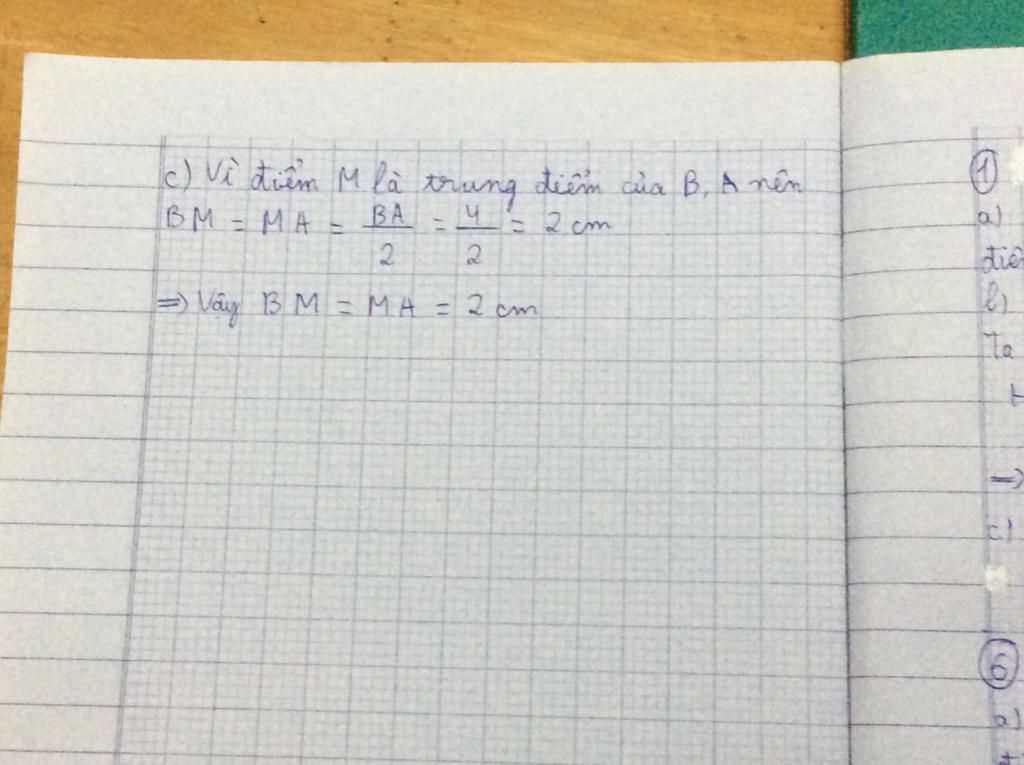 c) Vì điểm M là trung điểm của B, A nên
BM = MA = BA/2 = 4/2 = 2 cm
=) Vậy BM = MA = 2 cm
1
a)
điể
b)
Ta
=)
c)
6
a)